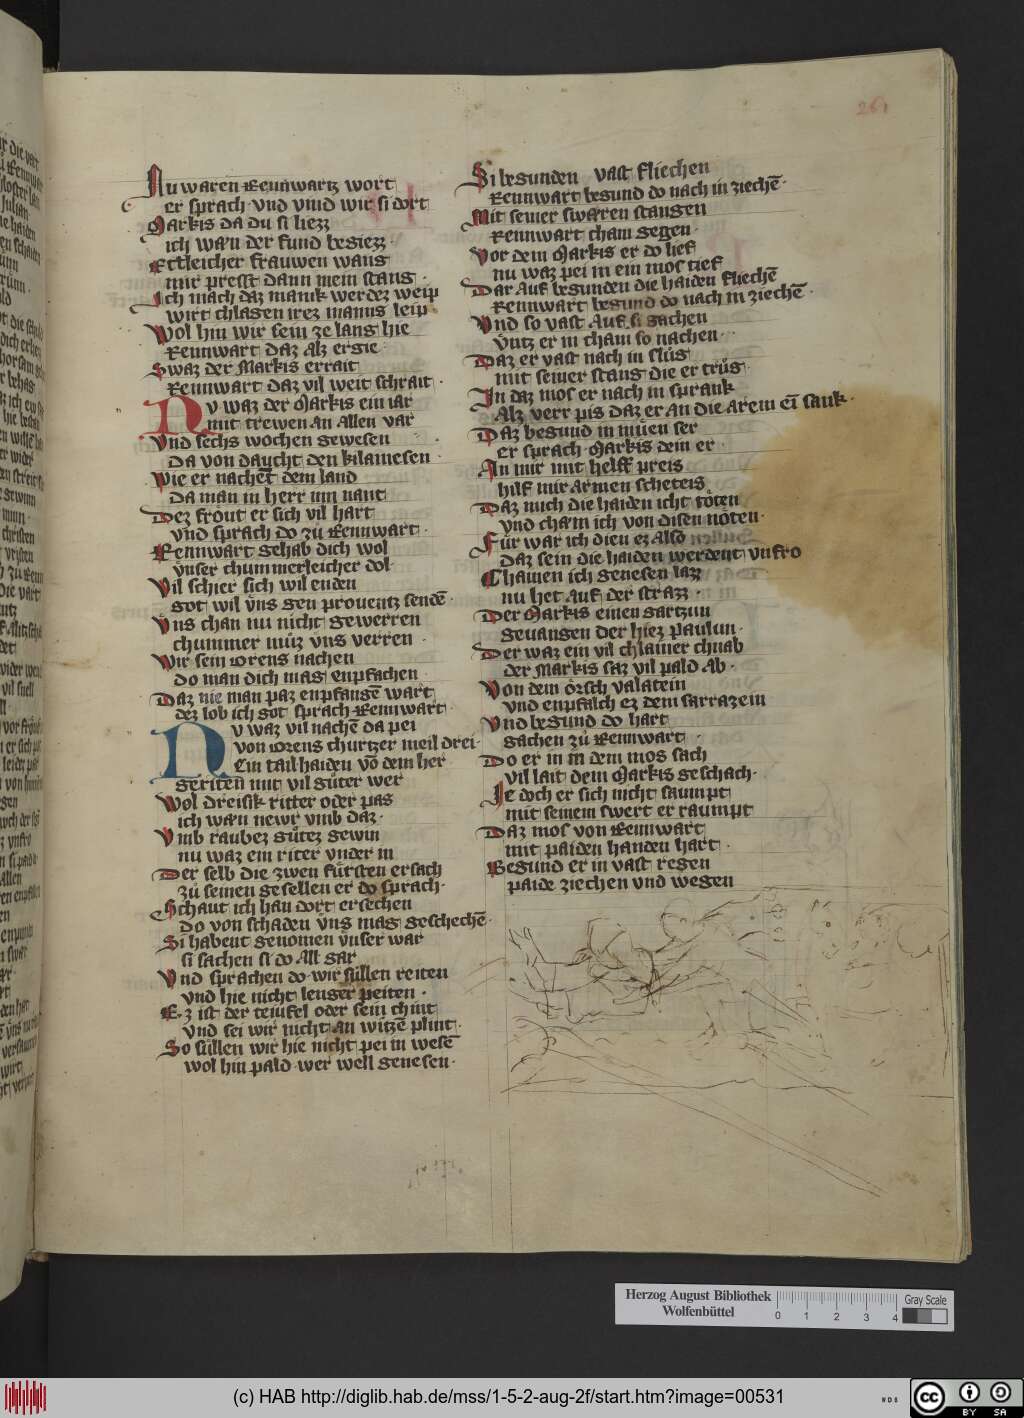 261
Nu waren Rennwartz wort
er sprach · vnd vind wir si dort
Markis da du si liezz
ich wæn der fund begiezz ·
Ettleicher frauwen wang
mir presst dann mein stang ·
Ich mach daz manik werdez weip
wirt chlagen irez manns leip ·
Wol hin wir sein ze lang hie
Rennwart daz alz ergie ·
Swaz der Markis errait
Rennwart daz vil weit schrait ·
Nv waz der Markis ein iar
mit trewen an allen var
Vnd sechs wochen gewesen
Da von daucht den kilamesen ·
Wie er nachēt dem land
Da man in herr inn nant
Dez frout er sich vil hart
vnd sprach do zů Rennwart ·
Rennwart gehab dich wol
vnser chummerleicher dol
Vil schier sich wil enden
got wil vns gen prouentz sendē ·
Vns chan nu nicht gewerren
chummer můz vns verren ·
Wir sein orens nachen
do man dich mag enpfachen ·
Daz nie man paz enpfangē wart
dez lob ich got sprach Rennwart ·
Nv waz vil nachē da pei
von orens churtzer meil drei ·
Ein tail haiden vō dem her
geriten mit vil gůter wer
Wol dreisik ritter oder pas
ich wæn newr vmb daz ·
Vmb raubez gůtez gewin
nu waz ein riter vnder in
Der selb die zwen fürsten ersach
zů seinen gesellen er do sprach ·
Schaut ich han dort ersechen
do von schaden vns mag geschechē ·
Si habent genomen vnser war
si sachen si do all gar
Vnd sprachen do wir süllen reiten
vnd hie nicht lenger peiten ·
Ez ist der teiufel oder sein chint
vnd sei wir nicht an witzē plint ·
So süllen wir hie nicht pei in wesē
wol hin pald wer well genesen ·
Si begunden vast fliechen
Rennwart begund do nach in ziechē ·
Mit seiner swæren stangen
Rennwart cham gegen ·
Vor dem Markis er do lief
nu waz pei in ein mos tief
Dar auf begunden die haiden fliechē
Rennwart begund do nach in ziechē ·
Vnd so vast auf si gachen
vntz er in cham so nachen ·
Daz er vast nach in slůg
mit seiner stang die er trůg
In daz mos er nach in sprank
Alz verr pis daz er an die arem eī sank ·
Daz begund in müen ser
er sprach Markis dein er ·
An mir mit helff preis
hilf mir armen scheteis
Daz mich die haiden icht töten
vnd chæm ich von disen nöten ·
Für war ich dien ez also
daz sein die haiden werdent vnfro
Chainen ich genesen lazz
nu het auf der strazz ·
Der Markis einen gartzun
geuangen der hiez Paulun ·
Der waz ein vil chlainer chnab
der Markis saz vil pald ab ·
Von dem örsch valatein
vnd enpfalch ez dem sarrazein
Vnd begund do hart
gachen zů Rennwart ·
Do er in in dem mos sach
vil lait dem Markis geschach ·
Ie doch er sich nicht saumpt
mit seinem swert er raumpt
Daz mos von Rennwart
mit paiden handen hart ·
Begund er in vast regen
paide ziechen vnd wegen
Herzog August Bibliothek
Wolfenbüttel
0 1 2 3 4
Gray Scale
(c) HAB http://diglib.hab.de/mss/1-5-2-aug-2f/start.htm?image=00531
WDB
cc BY SA